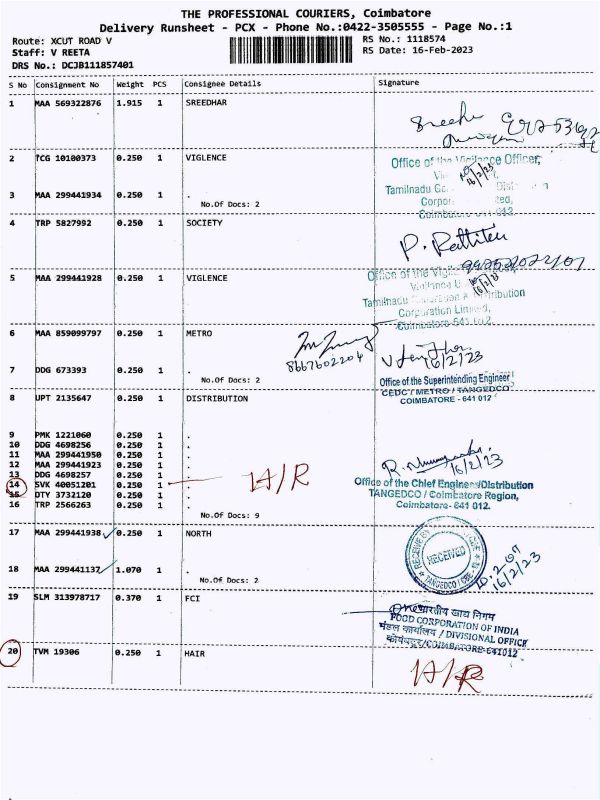 THE PROFESSIONAL COURIERS, Coimbatore
Delivery Runsheet - PCX - Phone No.:0422-3505555 - Page No.:1
Route: XCUT ROAD V
RS No.: 1118574
Staff: V REETA
RS Date: 16-Feb-2023
DRS No.: DCJB111857401
S No Consignment No Weight PCS Consignee Details Signature
1 MAA 569322876 1.915 1 SREEDHAR
2 TCG 10100373 0.250 1 VIGLENCE
Office of the Vigilance Officer,
16/2/23
3 MAA 299441934 0.250 1 .
Tamilnadu
No.Of Docs: 2
Coimbatore
4 TRP 5827992 0.250 1 SOCIETY
P.
Office of the
5 MAA 299441928 0.250 1 VIGLENCE
16/2/23
Tamilnadu
Corporation Limited,
Coimbatore-641 012.
6 MAA 859099797 0.250 1 METRO
8667602204
16/2/23
7 DDG 673393 0.250 1 .
No.Of Docs: 2
Office of the Superintending Engineer
CEDC / METRO / TANGEDCO
COIMBATORE - 641 012
8 UPT 2135647 0.250 1 DISTRIBUTION
9 PMK 1221060 0.250 1 .
10 DDG 4698256 0.250 1 .
11 MAA 299441950 0.250 1 .
12 MAA 299441923 0.250 1 .
13 DDG 4698257 0.250 1 .
14 SVK 40051201 0.250 1 .
15 DTY 3732120 0.250 1 .
16 TRP 2566263 0.250 1 .
No.Of Docs: 9
A/R
R.
16/2/23
Office of the Chief Engineer/Distribution
TANGEDCO / Coimbatore Region,
Coimbatore- 641 012.
17 MAA 299441938 0.250 1 NORTH
RECEIVED
TANGEDCO / CBE
16/2/23
18 MAA 299441137 1.070 1 .
No.Of Docs: 2
19 SLM 313978717 0.370 1 FCI
भारतीय खाद्य निगम
FOOD CORPORATION OF INDIA
मंडल कार्यालय / DIVISIONAL OFFICE
कोयंबटूर/COIMBATORE-641012
20 TVM 19306 0.250 1 HAIR
A/R